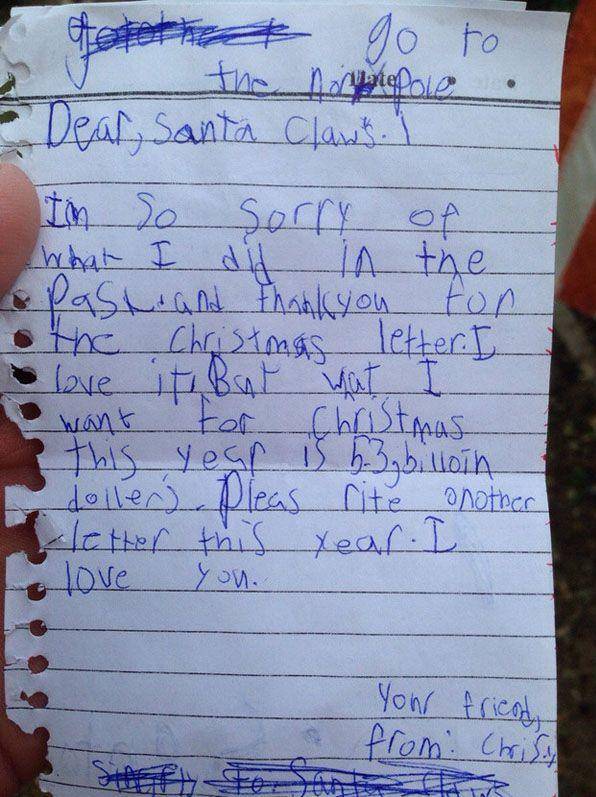 go to
the nor pole
Date
Dear, Santa Claws.
Im so sorry of
what I did in the
Past. and thankyou for
the Christmas letter. I
love it, But wat I
want for Christmas
this year is 53,billoin
dollers. Pleas rite onother
letter this year. I
love you.
Your friend,
from: Chris
to Santa Claws